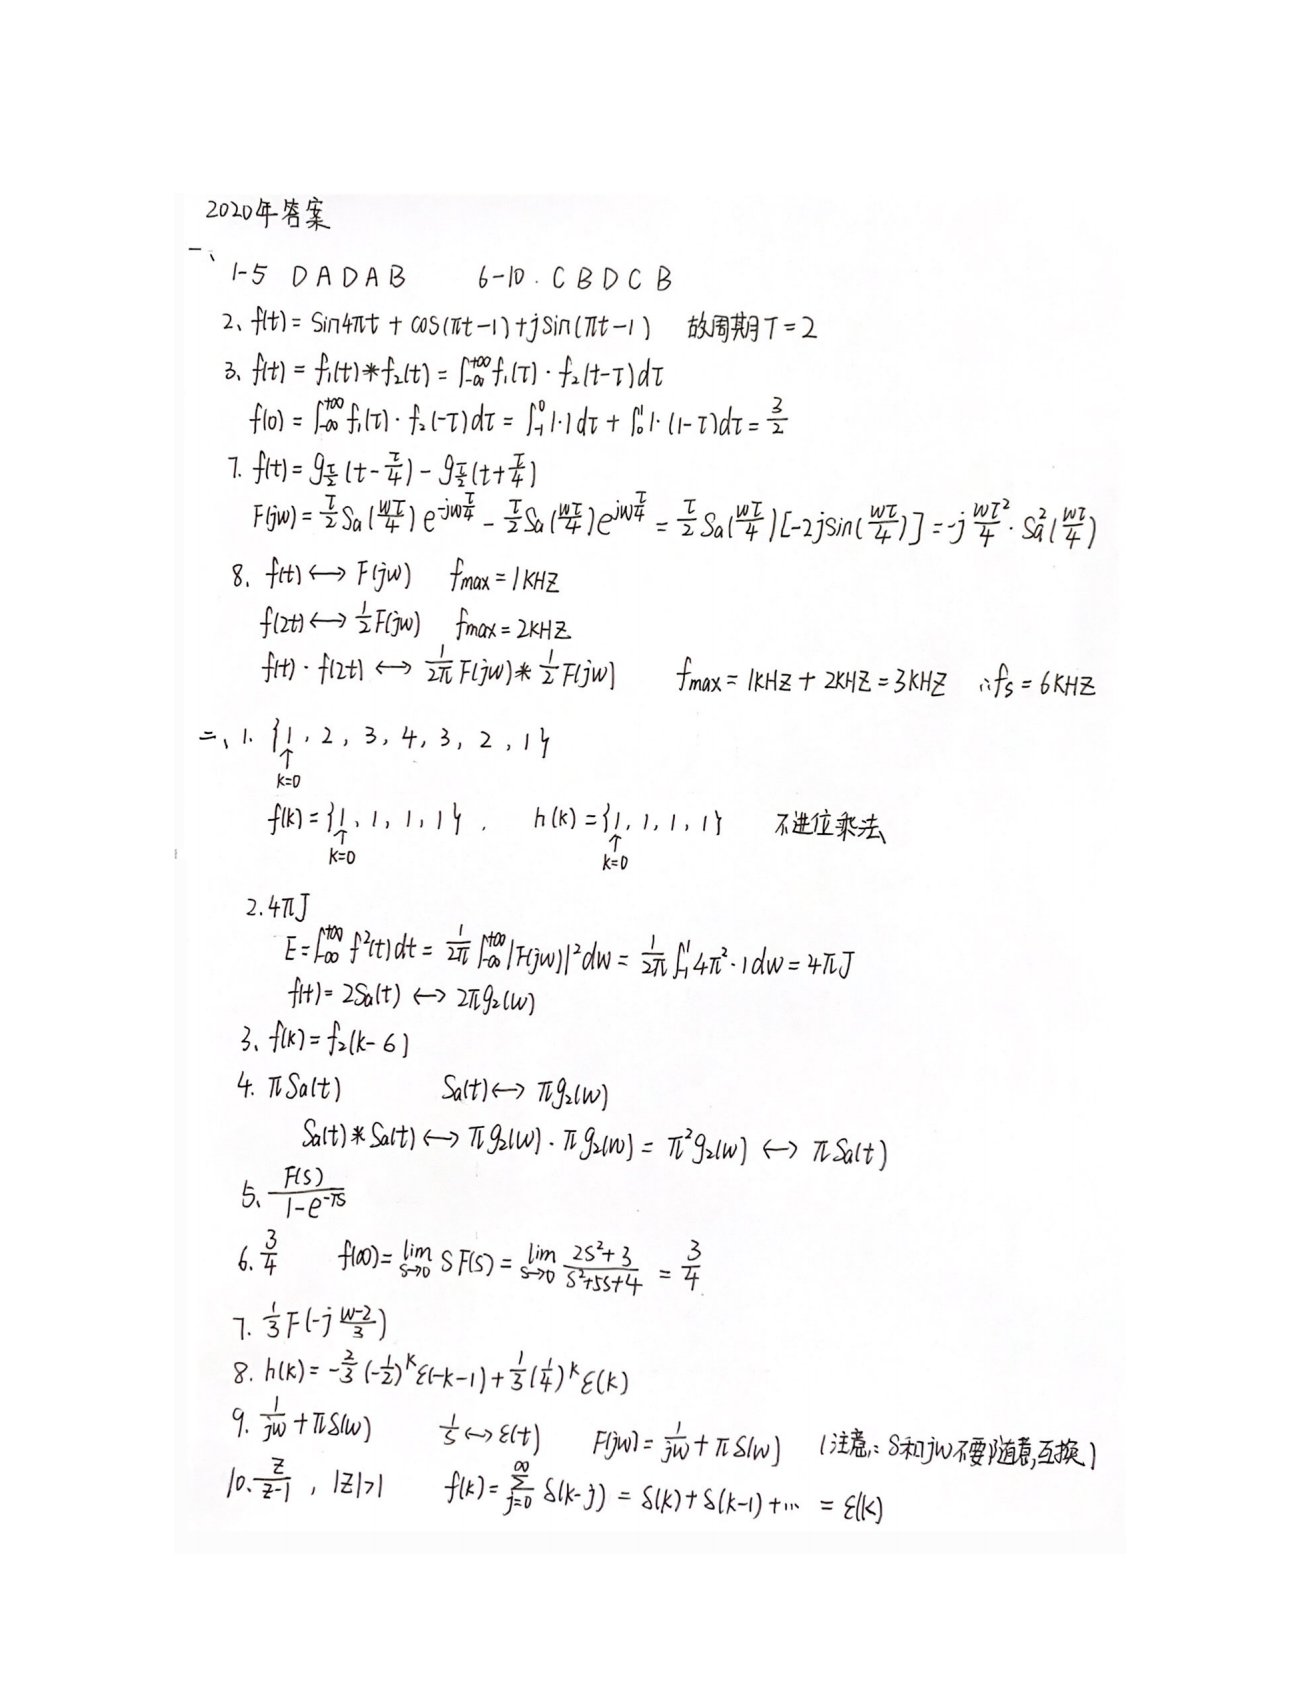 2020年答案
一、
1-5 D A D A B 6-10. C B D C B
2、f(t) = Sin4πt + cos(πt-1) + jsin(πt-1) 故周期T=2
3、f(t) = f₁(t)*f₂(t) = ∫_{-∞}^{+∞} f₁(τ)·f₂(t-τ)dτ
f(0) = ∫_{-∞}^{+∞} f₁(τ)·f₂(-τ)dτ = ∫_{-1}^{0} 1·1dτ + ∫_{0}^{1} 1·(1-τ)dτ = 3/2
7. f(t) = g_{τ/2}(t-τ/4) - g_{τ/2}(t+τ/4)
F(jw) = τ/2 Sa(wτ/4) e^{-jwτ/4} - τ/2 Sa(wτ/4) e^{jwτ/4} = τ/2 Sa(wτ/4)[-2jsin(wτ/4)] = -j wτ²/4 · Sa²(wτ/4)
8、f(t) ⟷ F(jw) fmax = 1KHZ
f(2t) ⟷ 1/2 F(jw) fmax = 2KHZ
f(t)·f(2t) ⟷ 1/2π F(jw) * 1/2 F(jw) fmax = 1KHZ + 2KHZ = 3KHZ ∴fs = 6KHZ
二、1. {1, 2, 3, 4, 3, 2, 1}
↑
k=0
f(k) = {1, 1, 1, 1}. h(k) = {1, 1, 1, 1} 不进位乘法
↑ ↑
k=0 k=0
2. 4πJ
E = ∫_{-∞}^{+∞} f²(t)dt = 1/2π ∫_{-∞}^{+∞} |F(jw)|²dw = 1/2π ∫_{-1}^{1} 4π²·1dw = 4πJ
f(t) = 2Sa(t) ⟷ 2πg₂(w)
3、f(k) = f₂(k-6)
4. πSa(t) Sa(t) ⟷ πg₂(w)
Sa(t)*Sa(t) ⟷ πg₂(w)·πg₂(w) = π²g₂(w) ⟷ πSa(t)
5、F(s)/(1-e^{-Ts})
6. 3/4 f(∞) = lim_{s→0} SF(s) = lim_{s→0} (2s²+3)/(s²+5s+4) = 3/4
7. 1/3 F(-j (w-2)/3)
8. h(k) = -2/3 (-1/2)^k ε(-k-1) + 1/3 (1/4)^k ε(k)
9. 1/jw + πδ(w) 1/s ⟷ ε(t) F(jw) = 1/jw + πδ(w) (注意:S和jw不要随意互换)
10. z/(z-1), |z|>1 f(k) = Σ_{j=0}^{∞} δ(k-j) = δ(k) + δ(k-1) + … = ε(k)